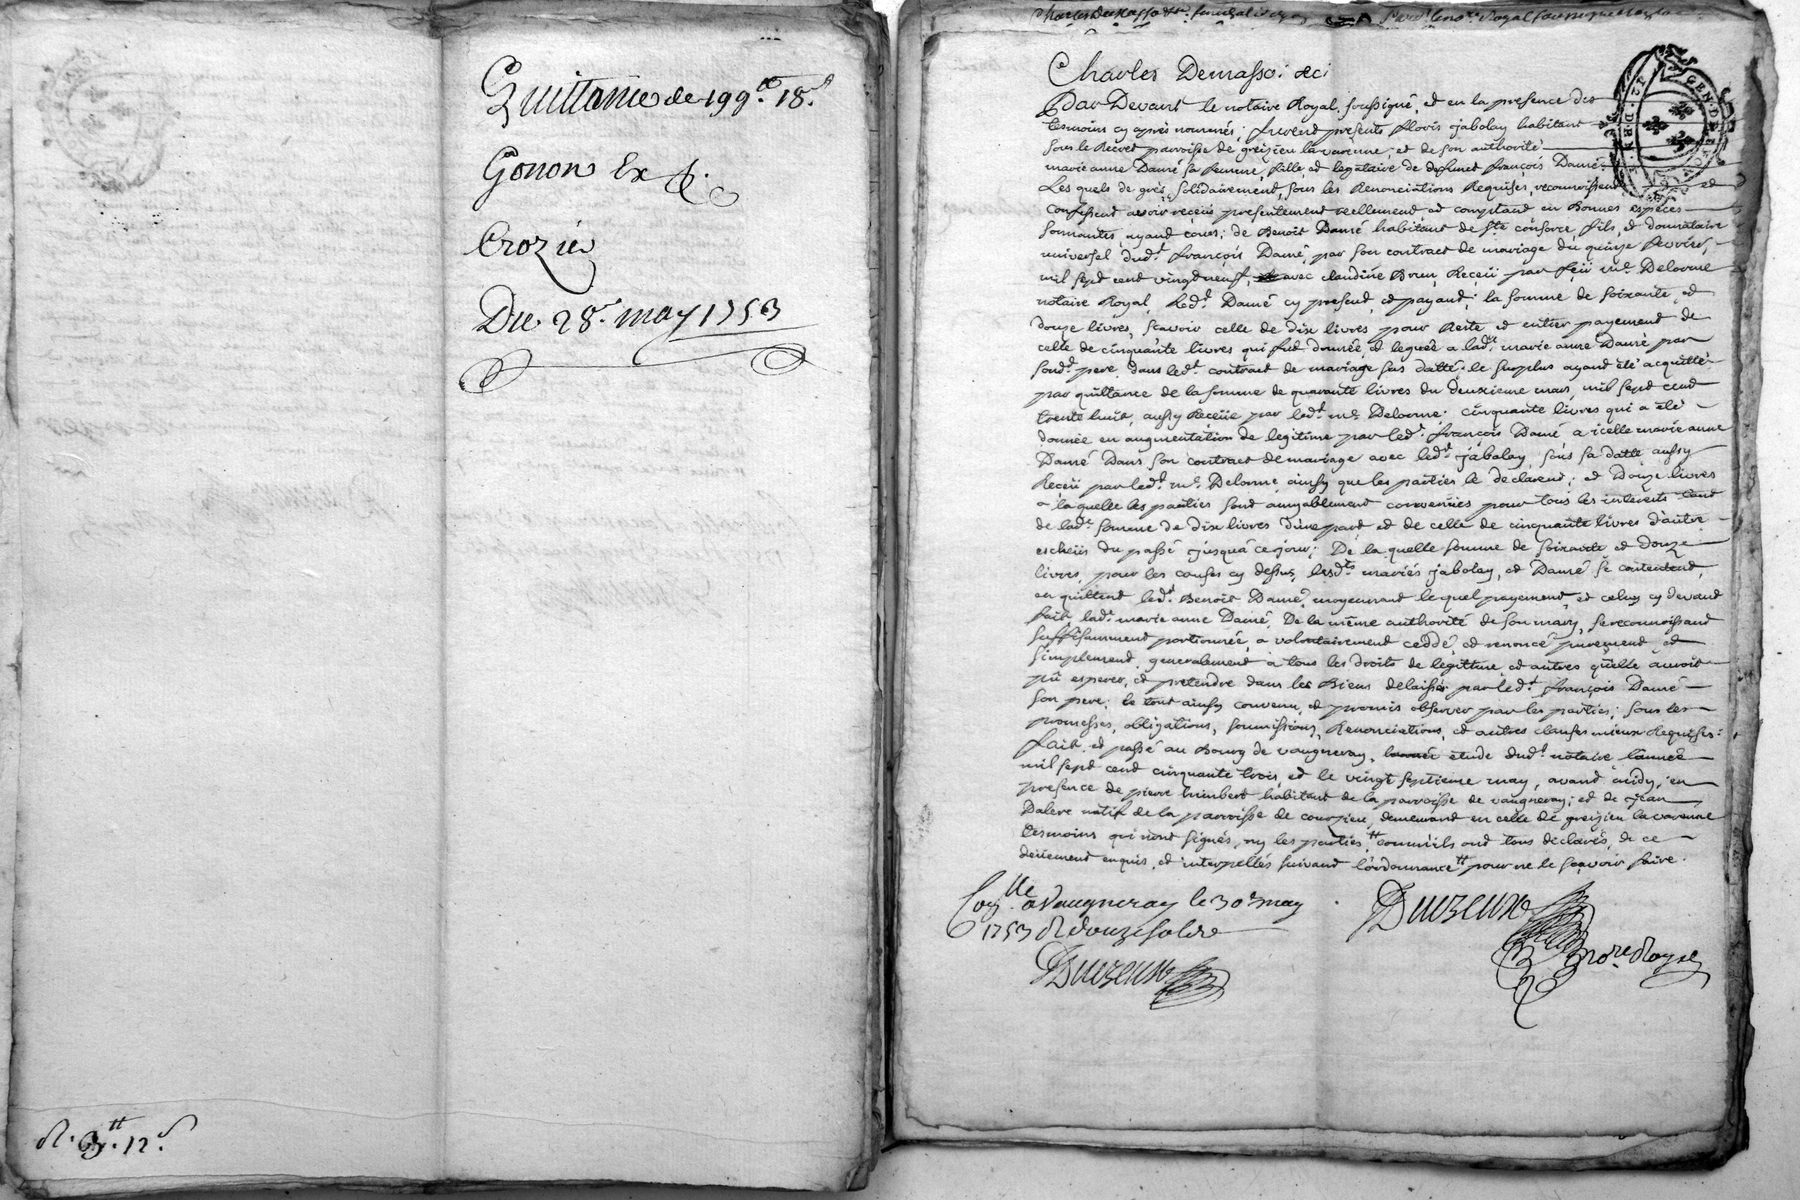 Quittance de 199.tt 18.s
Gonon Ex
Crozier
Du 28.e may 1753
R. 3.tt 12.s
Charles Demasso; &c;
Par Devant le notaire Royal, soussigné, et en la presence des
tesmoins cy après nommés; furent presents Floris jabolay habitant
sous le Recret parroisse de greizieu la varenne; et de son authorité
marie anne Damé sa femme, fille, et legataire de defunct françois Damé
Les quels de gré, solidairement, sous les Renonciations Requises, reconnoissent et
confessent avoir receus presentement reellement et comptant en Bonnes especes
sonnantes, ayant cours; de Benoit Damé habitant de ste consorce, fils, et donnataire
universel dud.t françois Damé, par son contract de mariage du quinze fevrier,
mil sept cent vingt neuf, avec claudine Brun, Receü par feü m.e Delorme
notaire Royal, led.t Damé cy present, et payant; la somme de soixante, et
douze livres, sçavoir celle de dix livres pour Reste et entier payement de
celle de cinquante livres qui fut donnée, et leguée a lad.te marie anne Damé par
sond.t pere, dans led.t contract de mariage sus datté; le surplus ayant été acquitté
par quittance de la somme de quarante livres du deuxieme mars, mil sept cent
trente huit, aussy Receüe par led.t m.e Delorme; cinquante livres qui a été
donnée en augmentation de legitime par led.t françois Damé, a icelle marie anne
Damé Dans son contract de mariage avec led.t jabolay, sous sa datte aussy
Receü par led.t m.e Delorme ainsy que les parties le declarent; et Douze livres
a la quelle les parties sont amyablement convenües pour tous les interests tant
de lad.te somme de dix livres d'une part et de celle de cinquante livres d'autre
escheüs du passé jusqu'a ce jour; De la quelle somme de soixante et douze
livres, pour les causes cy dessus, lesd.ts mariés jabolay, et Damé se contentent,
en quittent led.t Benoit Damé, moyennant lequel payement, et celuy cy devant
fait, lad.te marie anne Damé, De la même authorité de son mary, se reconnoissant
suffisamment portionnée, a volontairement ceddé, et renoncé purement, et
simplement, generalement à tous les droits de legittime, et autres qu'elle auroit
pû esperer, et pretendre dans les Biens delaissés par led.t françois Damé
son pere; le tout ainsy convenu, et promis observer par les parties; sous les
promesses, obligations, soumissions, Renonciations, et autres clauses mieux Requises:
fait, et passé au Bourg de vaugneray, étude dud.t notaire l'année
mil sept cent cinquante trois, et le vingt septieme may, avant midy, en
presence de pierre himbert habitant de la parroisse de vaugneray; et de jean
Dalere natif de la parroisse de courzieu, demeurant en celle de greizieu la varenne
tesmoins qui n'ont signés, ny les parties, comm'ils ont tous declarés, de ce
deüement enquis, et interpellés suivant l'ordonnance pour ne le sçavoir faire.
Con.lle a Vaugneray le 30 may
1753 R douze sols
no.re Royal